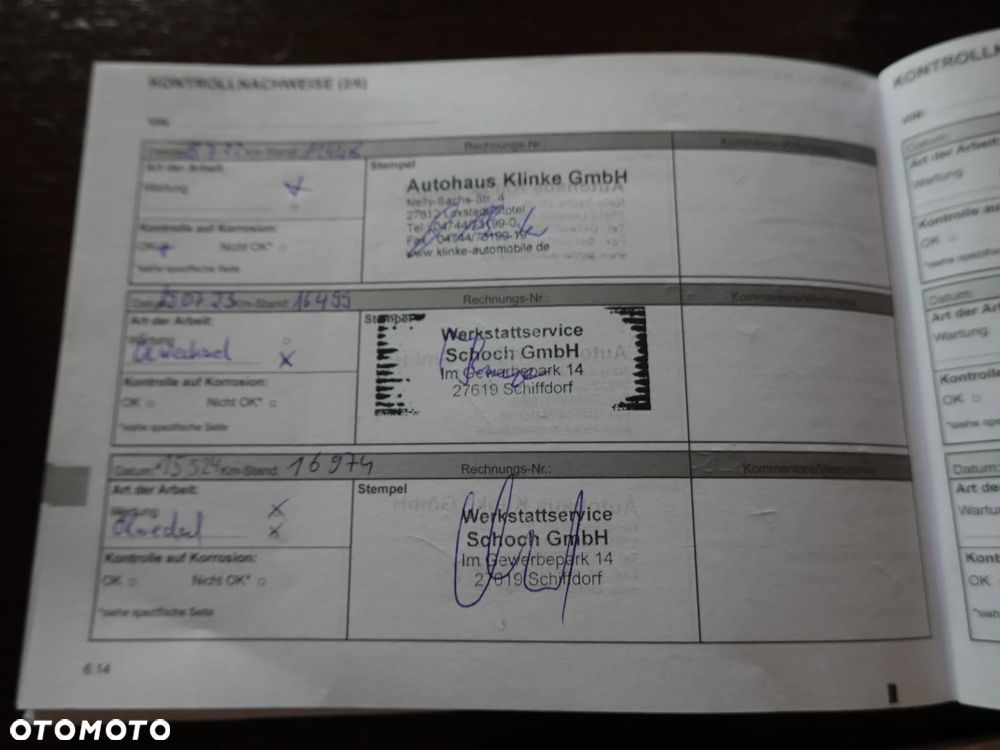 KONTROLLNACHWEISE (2/6)
KONTROLLN
VIN:
VIN:
Km-Stand:
Rechnungs-Nr.:
Datum:
Art der Arbeit:
Stempel
Wartung
Autohaus Klinke GmbH
Nelly-Sachs-Str. 4
27612 Loxstedt/Stotel
Tel. 04744/73199-0
Fax 04744/73199-19
www.klinke-automobile.de
Kontrolle auf Korrosion:
OK
Nicht OK*
*siehe spezifische Seite
Art der Arbeit
Wartung.
Kontrolle auf
OK
*siehe spezifis
Datum: 07 23 Km-Stand: 16495
Rechnungs-Nr.:
Kommentare/Werkstatt
Art der Arbeit:
Stempel
Wartung
Ölwechsel x
Werkstattservice
Schoch GmbH
Im Gewerbepark 14
27619 Schiffdorf
Kontrolle auf Korrosion:
OK
Nicht OK*
*siehe spezifische Seite
Datum:
Art der A
Wartung.
Kontrolle
OK
*siehe sp
Datum: Km-Stand: 16974
Rechnungs-Nr.:
Art der Arbeit:
Stempel
Wartung x
Ölwechsel x
Werkstattservice
Schoch GmbH
Im Gewerbepark 14
27619 Schiffdorf
Kontrolle auf Korrosion:
OK
Nicht OK*
*siehe spezifische Seite
Datum:
Art de
Wartu
Kont
OK
*sieh
6.14
OTOMOTO